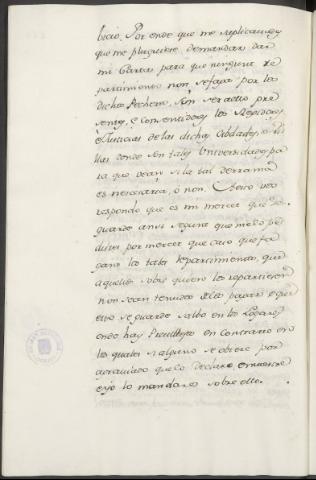 bicio. Por ende que me suplicauades
que me pluguiese de mandar dar
mi Carta para que ninguna re
partimiento non se faga por los
dichos Pecheros, sin ser a ello pre
sentes, é consentidores los Regidores,
é Justicias de las dichas Cibdades, é Vi
llas donde son tales Universidades pa
ra que vean si la tal derrama
es necesaria, ó non. A esto vos
respondo que es mi merced que se
guarde ansi segunt que me lo pe
distes por merced que caso que fa
gan los tales repartimientos, que
aquellos sobre quien los repartieren
non sean tenudos de los pagar, é que
esto se guarde salvo en los Logares
onde hay Previllejo en contrario en
los quales si alguno se obiere por
agraviado que lo declare, é mostre
é yo lo mandaré sobre ello.